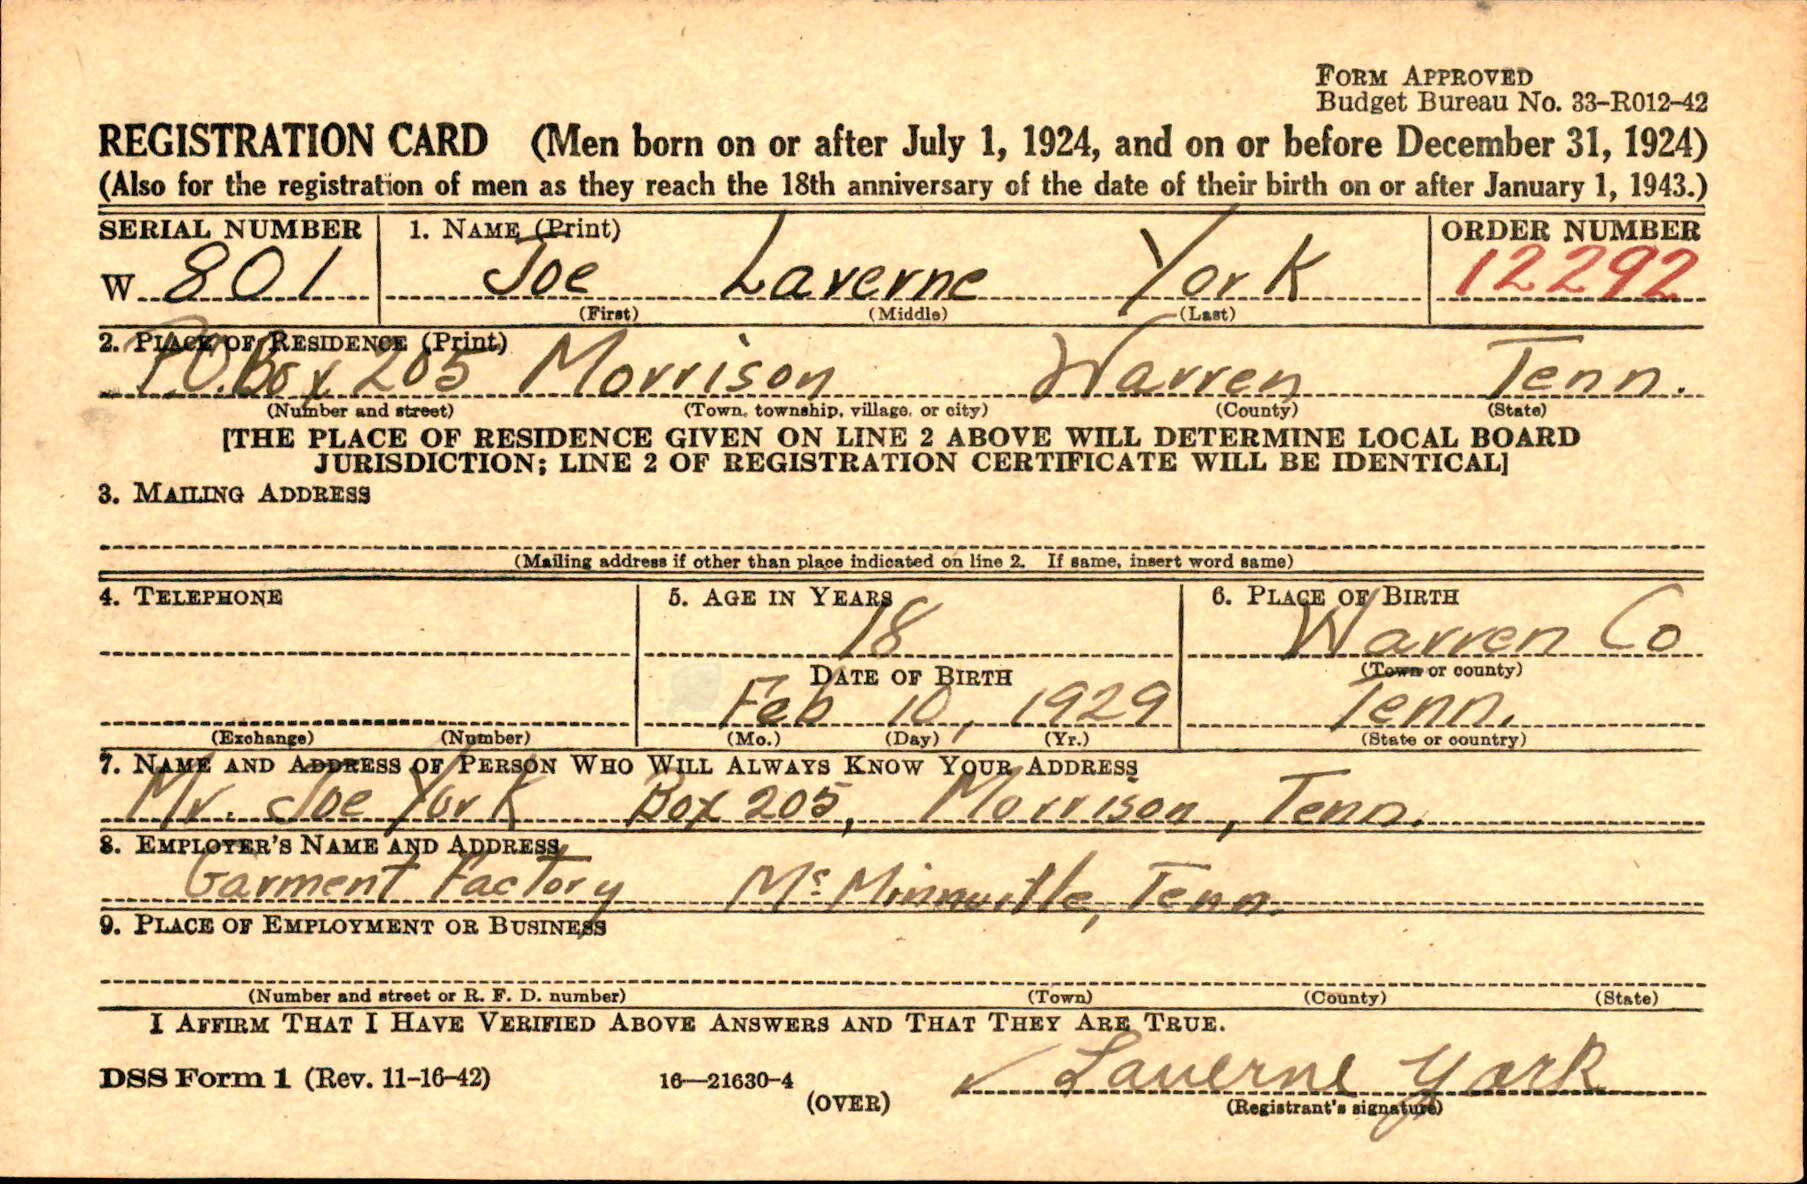 FORM APPROVED
Budget Bureau No. 33-R012-42
REGISTRATION CARD (Men born on or after July 1, 1924, and on or before December 31, 1924)
(Also for the registration of men as they reach the 18th anniversary of the date of their birth on or after January 1, 1943.)
SERIAL NUMBER 1. NAME (Print) ORDER NUMBER
W 801 Joe Laverne York 12292
(First) (Middle) (Last)
2. PLACE OF RESIDENCE (Print)
P.O. Box 205 Morrison Warren Tenn.
(Number and street) (Town, township, village, or city) (County) (State)
[THE PLACE OF RESIDENCE GIVEN ON LINE 2 ABOVE WILL DETERMINE LOCAL BOARD
JURISDICTION; LINE 2 OF REGISTRATION CERTIFICATE WILL BE IDENTICAL]
3. MAILING ADDRESS
(Mailing address if other than place indicated on line 2. If same, insert word same)
4. TELEPHONE 5. AGE IN YEARS 6. PLACE OF BIRTH
18 Warren Co
DATE OF BIRTH (Town or county)
Feb 10, 1929 Tenn.
(Exchange) (Number) (Mo.) (Day) (Yr.) (State or country)
7. NAME AND ADDRESS OF PERSON WHO WILL ALWAYS KNOW YOUR ADDRESS
Mr. Joe York Box 205, Morrison, Tenn.
8. EMPLOYER'S NAME AND ADDRESS
Garment Factory McMinnville, Tenn.
9. PLACE OF EMPLOYMENT OR BUSINESS
(Number and street or R. F. D. number) (Town) (County) (State)
I AFFIRM THAT I HAVE VERIFIED ABOVE ANSWERS AND THAT THEY ARE TRUE.
DSS Form 1 (Rev. 11-16-42) 16—21630-4 ✓ Laverne York
(OVER) (Registrant's signature)